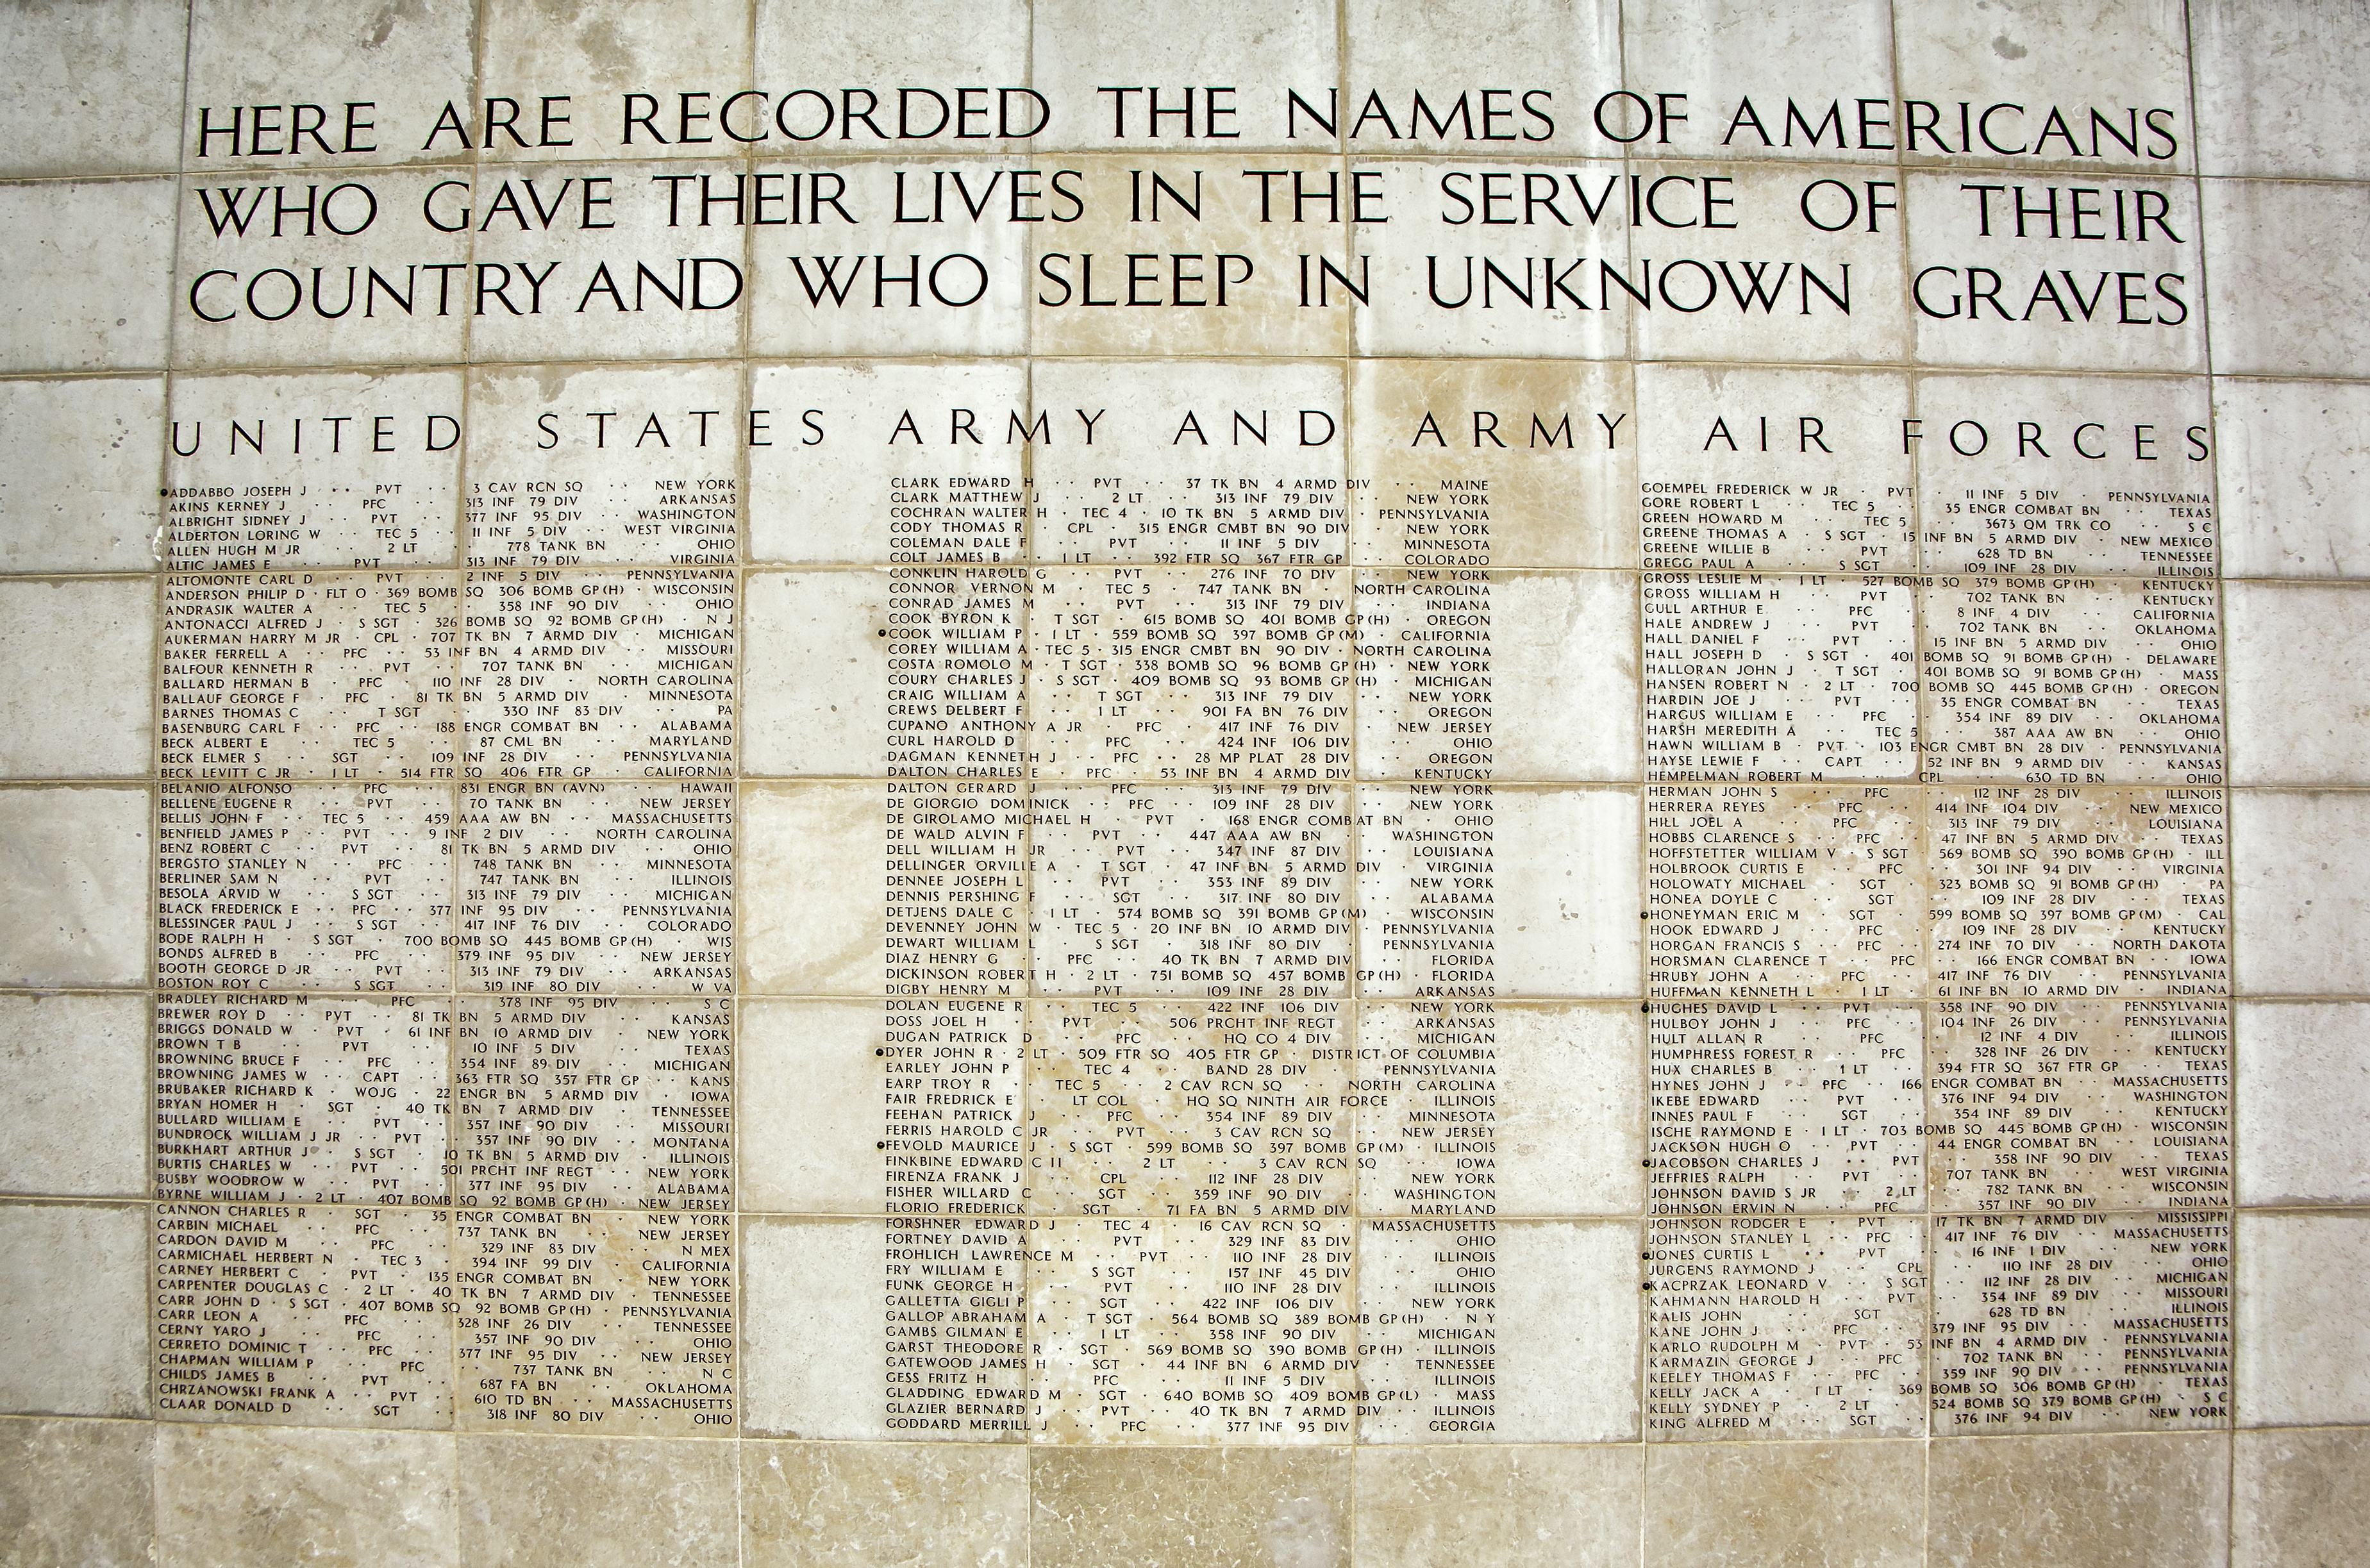 HERE ARE RECORDED THE NAMES OF AMERICANS
WHO GAVE THEIR LIVES IN THE SERVICE OF THEIR
COUNTRY AND WHO SLEEP IN UNKNOWN GRAVES
UNITED STATES ARMY AND ARMY AIR FORCES
ADDABBO JOSEPH J PVT 3 CAV RCN SQ NEW YORK
AKINS KERNEY J PFC 313 INF 79 DIV ARKANSAS
ALBRIGHT SIDNEY J PVT 377 INF 95 DIV WASHINGTON
ALDERTON LORING W TEC 5 11 INF 5 DIV WEST VIRGINIA
ALLEN HUGH M JR 2 LT 778 TANK BN OHIO
ALTIC JAMES E PVT 313 INF 79 DIV VIRGINIA
ALTOMONTE CARL D PVT 2 INF 5 DIV PENNSYLVANIA
ANDERSON PHILIP D FLT O 369 BOMB SQ 306 BOMB GP(H) WISCONSIN
ANDRASIK WALTER A TEC 5 358 INF 90 DIV OHIO
ANTONACCI ALFRED J S SGT 326 BOMB SQ 92 BOMB GP(H) N J
AUKERMAN HARRY M JR CPL 707 TK BN 7 ARMD DIV MICHIGAN
BAKER FERRELL A PFC 53 INF BN 4 ARMD DIV MISSOURI
BALFOUR KENNETH R PVT 707 TANK BN MICHIGAN
BALLARD HERMAN B PFC 110 INF 28 DIV NORTH CAROLINA
BALLAUF GEORGE F PFC 81 TK BN 5 ARMD DIV MINNESOTA
BARNES THOMAS C T SGT 330 INF 83 DIV PA
BASENBURG CARL F PFC 188 ENGR COMBAT BN ALABAMA
BECK ALBERT E TEC 5 87 CML BN MARYLAND
BECK ELMER S SGT 109 INF 28 DIV PENNSYLVANIA
BECK LEVITT C JR 1 LT 514 FTR SQ 406 FTR GP CALIFORNIA
BELANIO ALFONSO PFC 831 ENGR BN (AVN) HAWAII
BELLENE EUGENE R PVT 70 TANK BN NEW JERSEY
BELLIS JOHN F TEC 5 459 AAA AW BN MASSACHUSETTS
BENFIELD JAMES P PVT 9 INF 2 DIV NORTH CAROLINA
BENZ ROBERT C PVT 81 TK BN 5 ARMD DIV OHIO
BERGSTO STANLEY N PFC 748 TANK BN MINNESOTA
BERLINER SAM N PVT 747 TANK BN ILLINOIS
BESOLA ARVID W S SGT 313 INF 79 DIV MICHIGAN
BLACK FREDERICK E PFC 377 INF 95 DIV PENNSYLVANIA
BLESSINGER PAUL J S SGT 417 INF 76 DIV COLORADO
BODE RALPH H S SGT 700 BOMB SQ 445 BOMB GP(H) WIS
BONDS ALFRED B PFC 379 INF 95 DIV NEW JERSEY
BOOTH GEORGE D JR PVT 313 INF 79 DIV ARKANSAS
BOSTON ROY C S SGT 319 INF 80 DIV W VA
BRADLEY RICHARD M PFC 378 INF 95 DIV S C
BREWER ROY D PVT 81 TK BN 5 ARMD DIV KANSAS
BRIGGS DONALD W PVT 61 INF BN 10 ARMD DIV NEW YORK
BROWN T B PVT 10 INF 5 DIV TEXAS
BROWNING BRUCE F PFC 354 INF 89 DIV MICHIGAN
BROWNING JAMES W CAPT 363 FTR SQ 357 FTR GP KANS
BRUBAKER RICHARD K WOJG 22 ENGR BN 5 ARMD DIV IOWA
BRYAN HOMER H SGT 40 TK BN 7 ARMD DIV TENNESSEE
BULLARD WILLIAM E PVT 357 INF 90 DIV MISSOURI
BUNDROCK WILLIAM J JR PVT 357 INF 90 DIV MONTANA
BURKHART ARTHUR J S SGT 10 TK BN 5 ARMD DIV ILLINOIS
BURTIS CHARLES W PVT 501 PRCHT INF REGT NEW YORK
BUSBY WOODROW W PVT 377 INF 95 DIV ALABAMA
BYRNE WILLIAM J 2 LT 407 BOMB SQ 92 BOMB GP(H) NEW JERSEY
CANNON CHARLES R SGT 35 ENGR COMBAT BN NEW YORK
CARBIN MICHAEL PFC 737 TANK BN NEW JERSEY
CARDON DAVID M PFC 329 INF 83 DIV N MEX
CARMICHAEL HERBERT N TEC 3 394 INF 99 DIV CALIFORNIA
CARNEY HERBERT C PVT 135 ENGR COMBAT BN NEW YORK
CARPENTER DOUGLAS C 2 LT 40 TK BN 7 ARMD DIV TENNESSEE
CARR JOHN D S SGT 407 BOMB SQ 92 BOMB GP(H) PENNSYLVANIA
CARR LEON A PFC 328 INF 26 DIV TENNESSEE
CERNY YARO J PFC 357 INF 90 DIV OHIO
CERRETO DOMINIC T PFC 377 INF 95 DIV NEW JERSEY
CHAPMAN WILLIAM P PFC 737 TANK BN N C
CHILDS JAMES B PVT 687 FA BN OKLAHOMA
CHRZANOWSKI FRANK A PVT 610 TD BN MASSACHUSETTS
CLAAR DONALD D SGT 318 INF 80 DIV OHIO
CLARK EDWARD H PVT 37 TK BN 4 ARMD DIV MAINE
CLARK MATTHEW J 2 LT 313 INF 79 DIV NEW YORK
COCHRAN WALTER H TEC 4 10 TK BN 5 ARMD DIV PENNSYLVANIA
CODY THOMAS R CPL 315 ENGR CMBT BN 90 DIV NEW YORK
COLEMAN DALE F PVT 11 INF 5 DIV MINNESOTA
COLT JAMES B 1 LT 392 FTR SQ 367 FTR GP COLORADO
CONKLIN HAROLD G PVT 276 INF 70 DIV NEW YORK
CONNOR VERNON M TEC 5 747 TANK BN NORTH CAROLINA
CONRAD JAMES M PVT 313 INF 79 DIV INDIANA
COOK BYRON K T SGT 615 BOMB SQ 401 BOMB GP(H) OREGON
COOK WILLIAM P 1 LT 559 BOMB SQ 397 BOMB GP(M) CALIFORNIA
COREY WILLIAM A TEC 5 315 ENGR CMBT BN 90 DIV NORTH CAROLINA
COSTA ROMOLO M T SGT 338 BOMB SQ 96 BOMB GP(H) NEW YORK
COURY CHARLES J S SGT 409 BOMB SQ 93 BOMB GP(H) MICHIGAN
CRAIG WILLIAM A T SGT 313 INF 79 DIV NEW YORK
CREWS DELBERT F 1 LT 901 FA BN 76 DIV OREGON
CUPANO ANTHONY A JR PFC 417 INF 76 DIV NEW JERSEY
CURL HAROLD D PFC 424 INF 106 DIV OHIO
DAGMAN KENNETH J PFC 28 MP PLAT 28 DIV OREGON
DALTON CHARLES E PFC 53 INF BN 4 ARMD DIV KENTUCKY
DALTON GERARD J PFC 313 INF 79 DIV NEW YORK
DE GIORGIO DOMINICK PFC 109 INF 28 DIV NEW YORK
DE GIROLAMO MICHAEL H PVT 168 ENGR COMBAT BN OHIO
DE WALD ALVIN F PVT 447 AAA AW BN WASHINGTON
DELL WILLIAM H JR PVT 347 INF 87 DIV LOUISIANA
DELLINGER ORVILLE A T SGT 47 INF BN 5 ARMD DIV VIRGINIA
DENNEE JOSEPH L PVT 353 INF 89 DIV NEW YORK
DENNIS PERSHING F SGT 317 INF 80 DIV ALABAMA
DETJENS DALE C 1 LT 574 BOMB SQ 391 BOMB GP(M) WISCONSIN
DEVENNEY JOHN W TEC 5 20 INF BN 10 ARMD DIV PENNSYLVANIA
DEWART WILLIAM L S SGT 318 INF 80 DIV PENNSYLVANIA
DIAZ HENRY G PFC 40 TK BN 7 ARMD DIV FLORIDA
DICKINSON ROBERT H 2 LT 751 BOMB SQ 457 BOMB GP(H) FLORIDA
DIGBY HENRY M PVT 109 INF 28 DIV ARKANSAS
DOLAN EUGENE R TEC 5 422 INF 106 DIV NEW YORK
DOSS JOEL H PVT 506 PRCHT INF REGT ARKANSAS
DUGAN PATRICK D PFC HQ CO 4 DIV MICHIGAN
DYER JOHN R 2 LT 509 FTR SQ 405 FTR GP DISTRICT OF COLUMBIA
EARLEY JOHN P TEC 4 BAND 28 DIV PENNSYLVANIA
EARP TROY R TEC 5 2 CAV RCN SQ NORTH CAROLINA
FAIR FREDRICK E LT COL HQ SQ NINTH AIR FORCE ILLINOIS
FEEHAN PATRICK J PFC 354 INF 89 DIV MINNESOTA
FERRIS HAROLD C JR PVT 3 CAV RCN SQ NEW JERSEY
FEVOLD MAURICE J S SGT 599 BOMB SQ 397 BOMB GP(M) ILLINOIS
FINKBINE EDWARD C II 2 LT 3 CAV RCN SQ IOWA
FIRENZA FRANK J CPL 112 INF 28 DIV NEW YORK
FISHER WILLARD C SGT 359 INF 90 DIV WASHINGTON
FLORIO FREDERICK SGT 71 FA BN 5 ARMD DIV MARYLAND
FORSHNER EDWARD J TEC 4 16 CAV RCN SQ MASSACHUSETTS
FORTNEY DAVID A PVT 329 INF 83 DIV OHIO
FROHLICH LAWRENCE M PVT 110 INF 28 DIV ILLINOIS
FRY WILLIAM E S SGT 157 INF 45 DIV OHIO
FUNK GEORGE H PVT 110 INF 28 DIV ILLINOIS
GALLETTA GIGLI P SGT 422 INF 106 DIV NEW YORK
GALLOP ABRAHAM A T SGT 564 BOMB SQ 389 BOMB GP(H) N Y
GAMBS GILMAN E 1 LT 358 INF 90 DIV MICHIGAN
GARST THEODORE R SGT 569 BOMB SQ 390 BOMB GP(H) ILLINOIS
GATEWOOD JAMES H SGT 44 INF BN 6 ARMD DIV TENNESSEE
GESS FRITZ H PFC 11 INF 5 DIV ILLINOIS
GLADDING EDWARD M SGT 640 BOMB SQ 409 BOMB GP(L) MASS
GLAZIER BERNARD J PVT 40 TK BN 7 ARMD DIV ILLINOIS
GODDARD MERRILL J PFC 377 INF 95 DIV GEORGIA
GOEMPEL FREDERICK W JR PVT 11 INF 5 DIV PENNSYLVANIA
GORE ROBERT L TEC 5 35 ENGR COMBAT BN TEXAS
GREEN HOWARD M TEC 5 3673 QM TRK CO S C
GREENE THOMAS A S SGT 15 INF BN 5 ARMD DIV NEW MEXICO
GREENE WILLIE B PVT 628 TD BN TENNESSEE
GREGG PAUL A S SGT 109 INF 28 DIV ILLINOIS
GROSS LESLIE M 1 LT 527 BOMB SQ 379 BOMB GP(H) KENTUCKY
GROSS WILLIAM H PVT 702 TANK BN KENTUCKY
GULL ARTHUR E PFC 8 INF 4 DIV CALIFORNIA
HALE ANDREW J PVT 702 TANK BN OKLAHOMA
HALL DANIEL F PVT 15 INF BN 5 ARMD DIV OHIO
HALL JOSEPH D S SGT 401 BOMB SQ 91 BOMB GP(H) DELAWARE
HALLORAN JOHN J T SGT 401 BOMB SQ 91 BOMB GP(H) MASS
HANSEN ROBERT N 2 LT 700 BOMB SQ 445 BOMB GP(H) OREGON
HARDIN JOE J PVT 35 ENGR COMBAT BN TEXAS
HARGUS WILLIAM E PFC 354 INF 89 DIV OKLAHOMA
HARSH MEREDITH A TEC 5 387 AAA AW BN OHIO
HAWN WILLIAM B PVT 103 ENGR CMBT BN 28 DIV PENNSYLVANIA
HAYSE LEWIE F CAPT 52 INF BN 9 ARMD DIV KANSAS
HEMPELMAN ROBERT M CPL 630 TD BN OHIO
HERMAN JOHN S PFC 112 INF 28 DIV ILLINOIS
HERRERA REYES PFC 414 INF 104 DIV NEW MEXICO
HILL JOEL A PFC 313 INF 79 DIV LOUISIANA
HOBBS CLARENCE S PFC 47 INF BN 5 ARMD DIV TEXAS
HOFFSTETTER WILLIAM V S SGT 569 BOMB SQ 390 BOMB GP(H) ILL
HOLBROOK CURTIS E PFC 301 INF 94 DIV VIRGINIA
HOLOWATY MICHAEL SGT 323 BOMB SQ 91 BOMB GP(H) PA
HONEA DOYLE C SGT 109 INF 28 DIV TEXAS
HONEYMAN ERIC M SGT 599 BOMB SQ 397 BOMB GP(M) CAL
HOOK EDWARD J PFC 109 INF 28 DIV KENTUCKY
HORGAN FRANCIS S PFC 274 INF 70 DIV NORTH DAKOTA
HORSMAN CLARENCE T PFC 166 ENGR COMBAT BN IOWA
HRUBY JOHN A PFC 417 INF 76 DIV PENNSYLVANIA
HUFFMAN KENNETH L 1 LT 61 INF BN 10 ARMD DIV INDIANA
HUGHES DAVID L PVT 358 INF 90 DIV PENNSYLVANIA
HULBOY JOHN J PFC 104 INF 26 DIV PENNSYLVANIA
HULT ALLAN R PFC 12 INF 4 DIV ILLINOIS
HUMPHRESS FOREST R PFC 328 INF 26 DIV KENTUCKY
HUX CHARLES B 1 LT 394 FTR SQ 367 FTR GP TEXAS
HYNES JOHN J PFC 166 ENGR COMBAT BN MASSACHUSETTS
IKEBE EDWARD PVT 376 INF 94 DIV WASHINGTON
INNES PAUL F SGT 354 INF 89 DIV KENTUCKY
ISCHE RAYMOND E 1 LT 703 BOMB SQ 445 BOMB GP(H) WISCONSIN
JACKSON HUGH O PVT 44 ENGR COMBAT BN LOUISIANA
JACOBSON CHARLES J PVT 358 INF 90 DIV TEXAS
JEFFRIES RALPH PVT 707 TANK BN WEST VIRGINIA
JOHNSON DAVID S JR 2 LT 782 TANK BN WISCONSIN
JOHNSON ERVIN N PFC 357 INF 90 DIV INDIANA
JOHNSON RODGER E PVT 17 TK BN 7 ARMD DIV MISSISSIPPI
JOHNSON STANLEY L PFC 417 INF 76 DIV MASSACHUSETTS
JONES CURTIS L PVT 16 INF 1 DIV NEW YORK
JURGENS RAYMOND J CPL 110 INF 28 DIV OHIO
KACPRZAK LEONARD V S SGT 112 INF 28 DIV MICHIGAN
KAHMANN HAROLD H PVT 354 INF 89 DIV MISSOURI
KALIS JOHN SGT 628 TD BN ILLINOIS
KANE JOHN J PFC 379 INF 95 DIV MASSACHUSETTS
KARLO RUDOLPH M PVT 53 INF BN 4 ARMD DIV PENNSYLVANIA
KARMAZIN GEORGE J PFC 702 TANK BN PENNSYLVANIA
KEELEY THOMAS F PFC 359 INF 90 DIV PENNSYLVANIA
KELLY JACK A 1 LT 369 BOMB SQ 306 BOMB GP(H) TEXAS
KELLY SYDNEY P 2 LT 524 BOMB SQ 379 BOMB GP(H) S C
KING ALFRED M SGT 376 INF 94 DIV NEW YORK